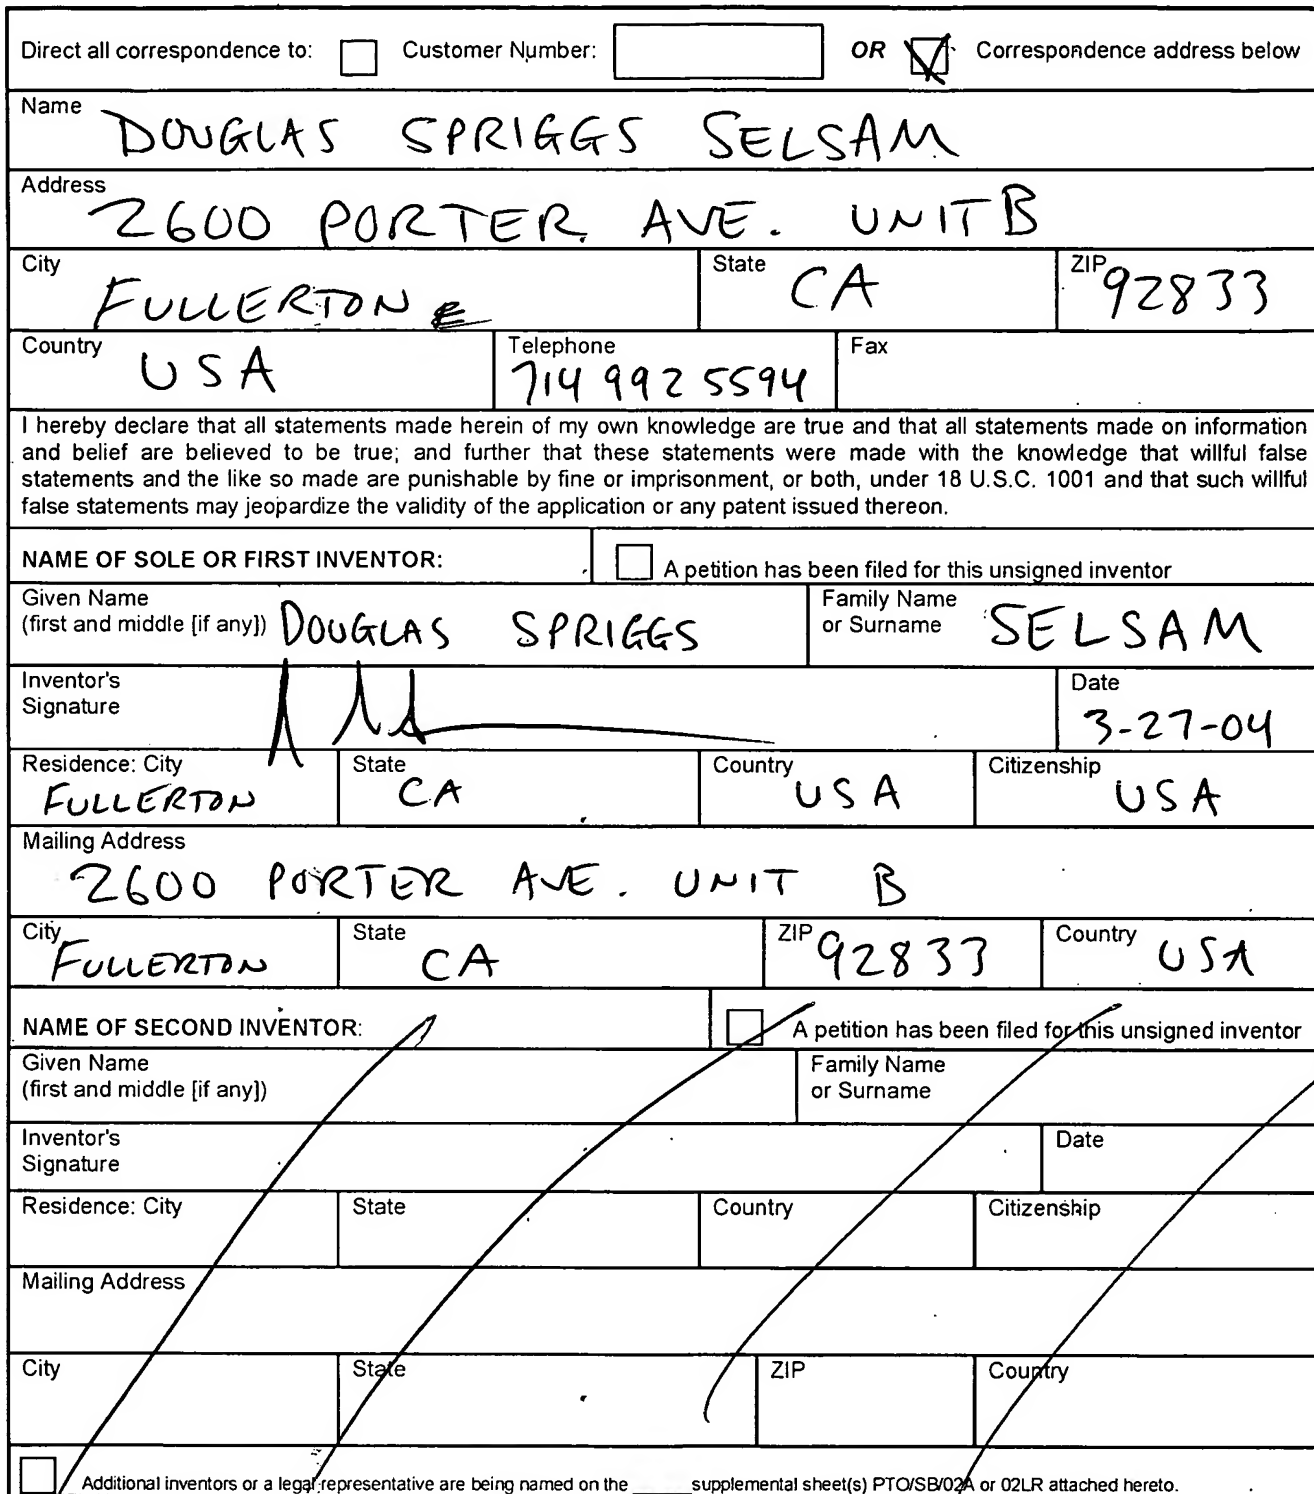 Direct all correspondence to: Customer Number: OR Correspondence address below
Name
DOUGLAS SPRIGGS SELSAM
Address
2600 PORTER AVE. UNIT B
City State ZIP
FULLERTON CA 92833
Country Telephone Fax
USA 714 992 5594
I hereby declare that all statements made herein of my own knowledge are true and that all statements made on information
and belief are believed to be true; and further that these statements were made with the knowledge that willful false
statements and the like so made are punishable by fine or imprisonment, or both, under 18 U.S.C. 1001 and that such willful
false statements may jeopardize the validity of the application or any patent issued thereon.
NAME OF SOLE OR FIRST INVENTOR: A petition has been filed for this unsigned inventor
Given Name Family Name
(first and middle [if any]) DOUGLAS SPRIGGS or Surname SELSAM
Inventor's Date
Signature 3-27-04
Residence: City State Country Citizenship
FULLERTON CA USA USA
Mailing Address
2600 PORTER AVE. UNIT B
City State ZIP Country
FULLERTON CA 92833 USA
NAME OF SECOND INVENTOR: A petition has been filed for this unsigned inventor
Given Name Family Name
(first and middle [if any]) or Surname
Inventor's Date
Signature
Residence: City State Country Citizenship
Mailing Address
City State ZIP Country
Additional inventors or a legal representative are being named on the ______supplemental sheet(s) PTO/SB/02A or 02LR attached hereto.